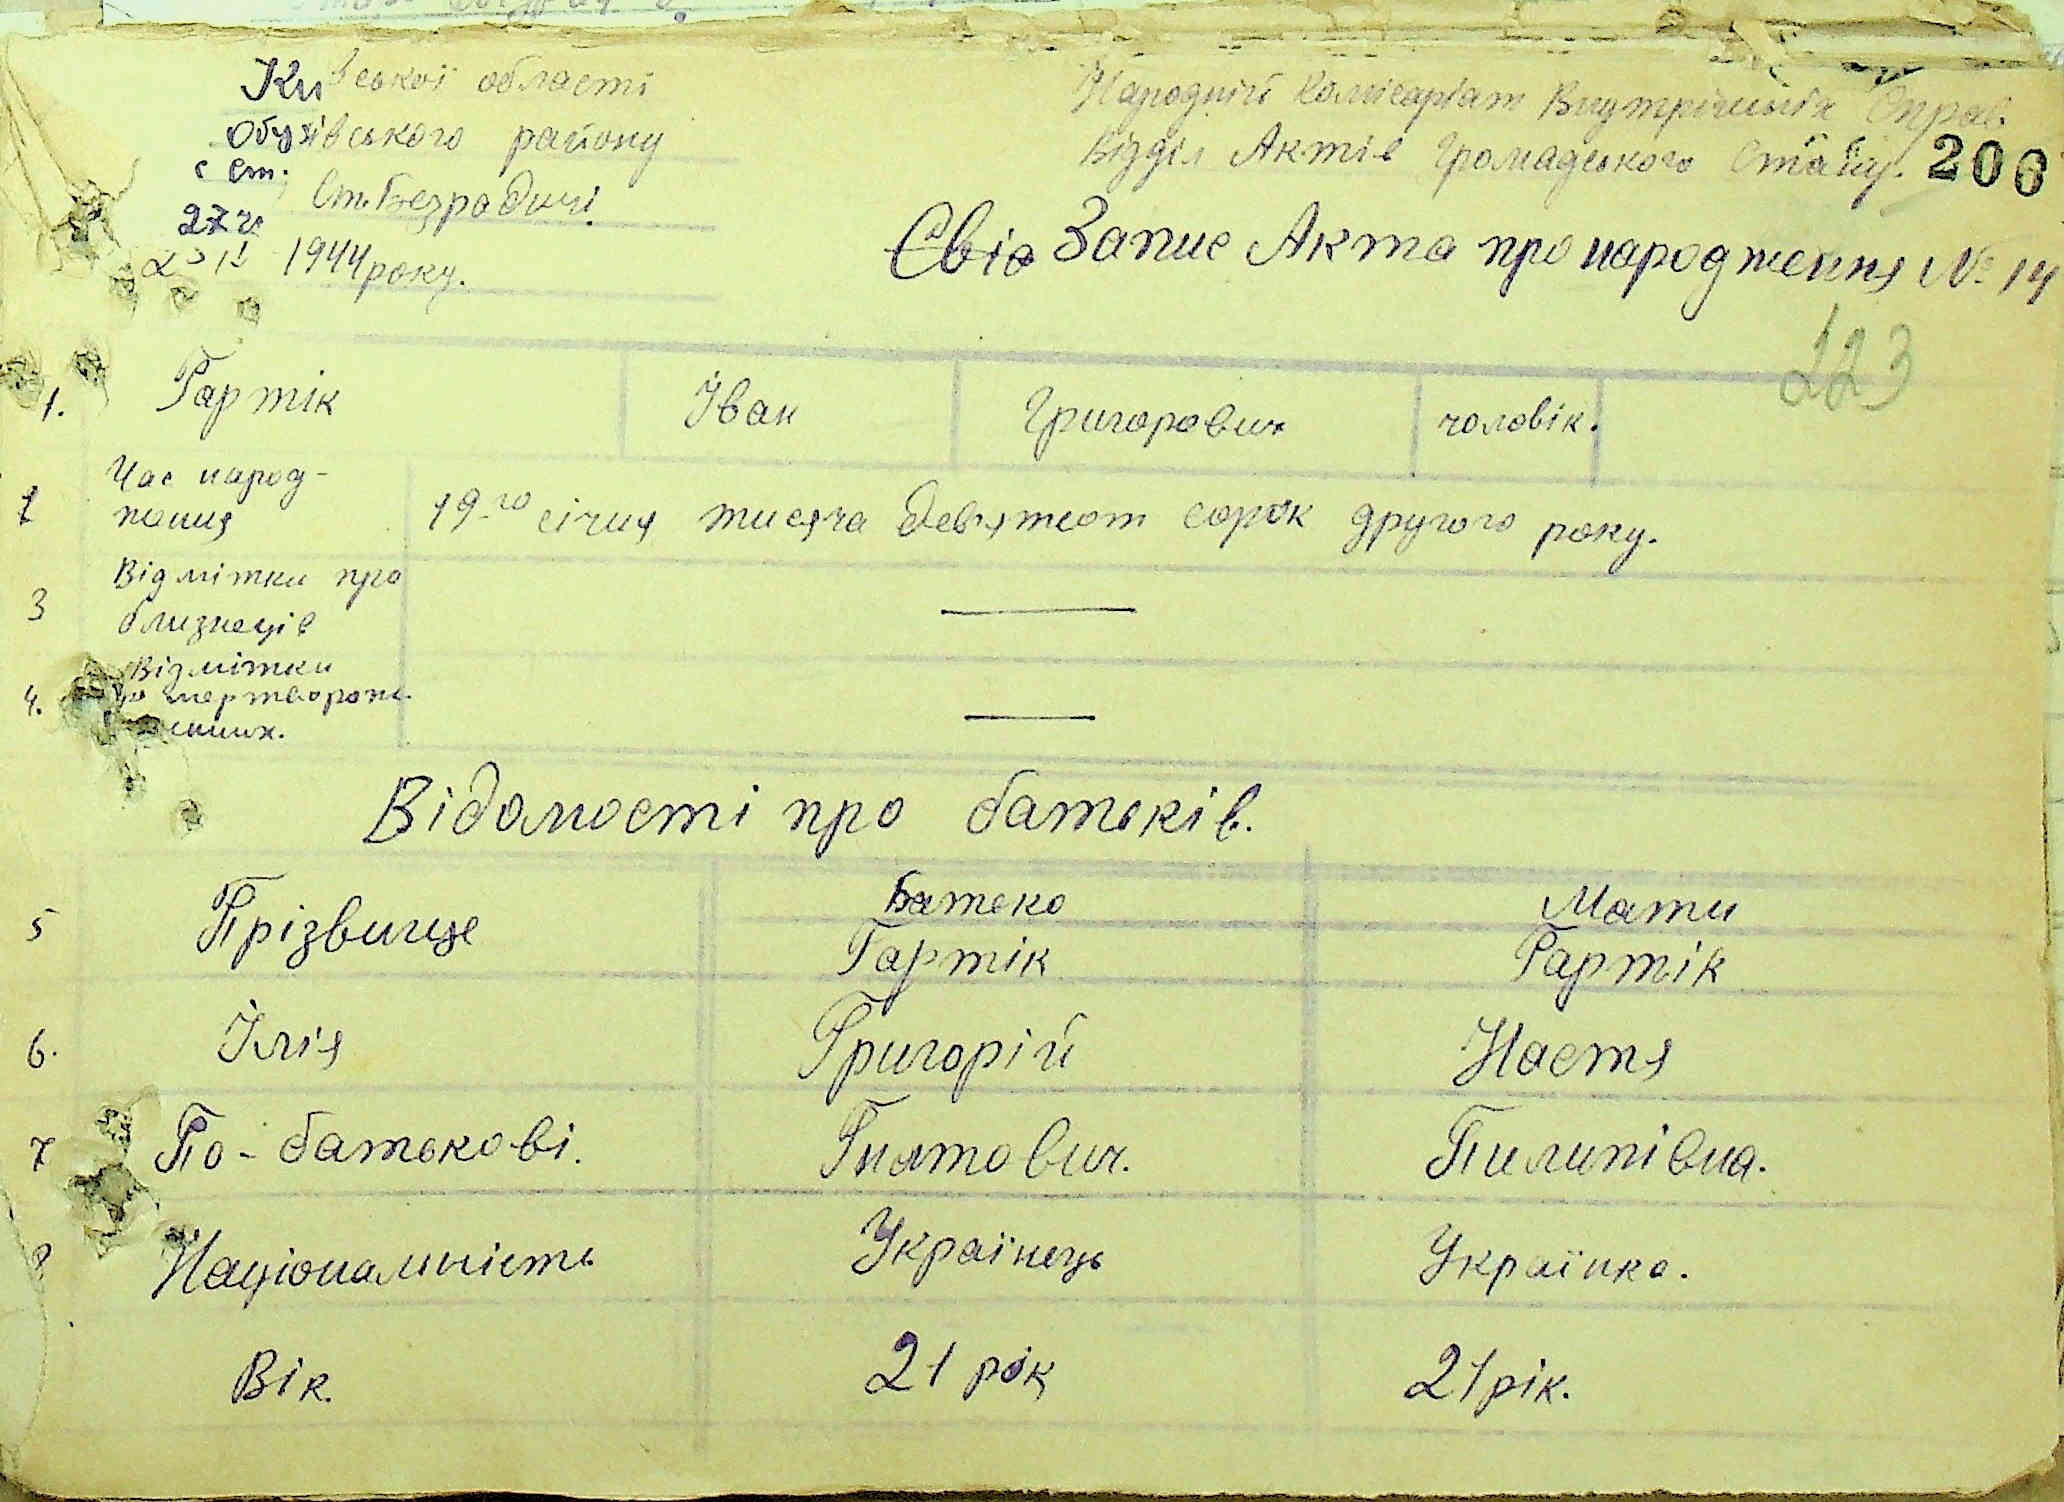 Київської області
Обухівського району
с Ст.
Ст. Безродичі.
27 ч.
1944 року.
Народній Комісаріат Внутрішніх Справ.
Відділ Актів Громадського Стану. 200
Свід Запис Акта про народження № 14
223
1. Гартік Іван Григорович чоловік.
Час народ-
ження 19-го січня тисяча девятсот сорок другого року.
3 Відмітки про
близнеців —
4. Відмітки
про мертворож-
денних. —
Відомості про батьків.
Батько Мати
5 Прізвище Гартік Гартік
6. Імія Григорій Настя
7 По-батькові. Гнатович. Пилипівна.
8 Національність Українець Українка.
Вік. 21 рік 21 рік.